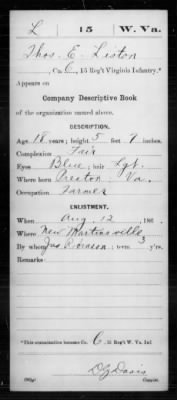 L 15 W. Va.
Thos. E. Liston
Co. C, 15 Reg't Virginia Infantry.*
Appears on
Company Descriptive Book
of the organization named above.
DESCRIPTION.
Age 18 years; height 5 feet 7 inches.
Complexion Fair
Eyes Blue; hair Lgt.
Where born Preston Va.
Occupation Farmer
ENLISTMENT.
When Aug. 12, 186 .
Where New Martinsville
By whom Jas. ; term 3 y'rs.
Remarks:
*This organization became Co. C, 15 Reg't W. Va. Inf.
Davis
Copyist.